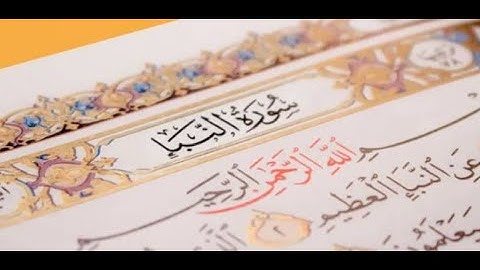 سُورَةُ النَّبَإِ
ـمِ اللَّهِ الرَّحْمَٰنِ الرَّحِيمِ
عَنِ النَّبَإِ الْعَظِيمِ ٢
سَيَعْلَمُونَ